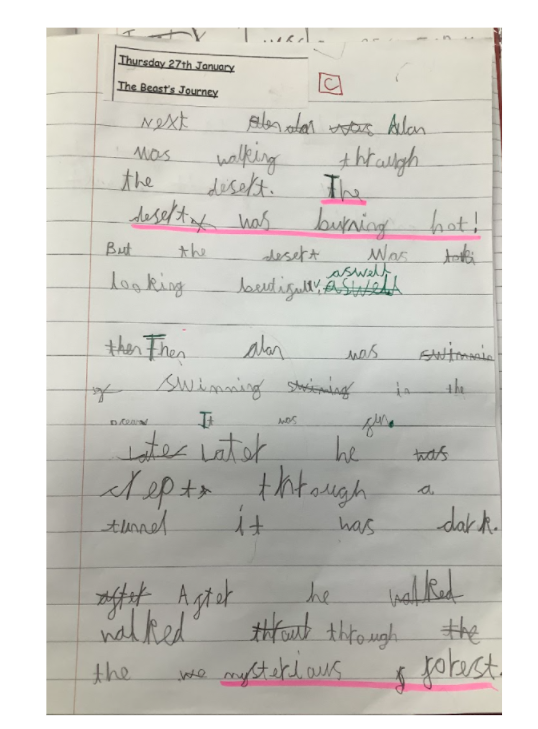 Thursday 27th January
The Beast's Journey
C
Next Alan alan was Alan
was walking through
the desert. The
desert was burning hot!
But the desert was looki
looking beutifull aswell aswell
then Then alan was swimmin
swimming swiming in the
ocean It was fun.
Later Later he was
crept through a
tunnel it was dark.
after After he walked
walked through the
the we mysterious forest.